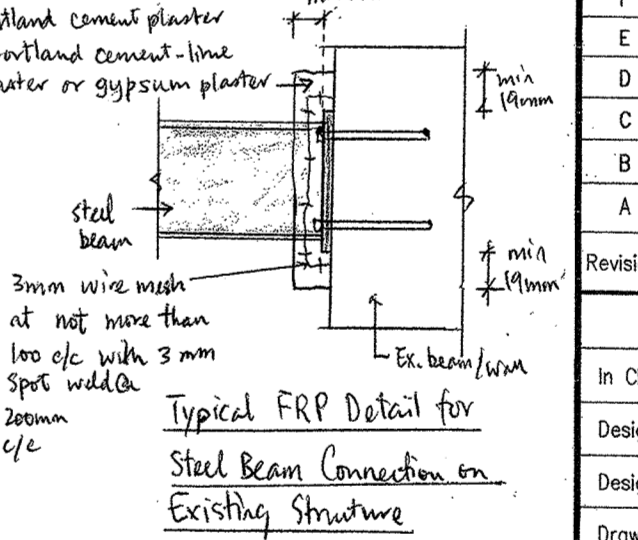 tland cement plaster
ortland cement-lime
aster or gypsum plaster
min
19mm
steel
beam
3mm wire mesh
at not more than
100 c/c with 3 mm
Spot weld @
200mm
c/c
min
19mm
Ex. beam/wall
Typical FRP Detail for
Steel Beam Connection on
Existing Struture
E
D
C
B
A
Revisi
In C
Desig
Desig
Draw